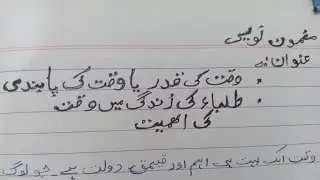 مضمون نویسی
عنوان:
• وقت کی قدر یا وقت کی پابندی
• طلباء کی زندگی میں وقت
کی اہمیت
وقت ایک بہت ہی اہم اور قیمتی دولت ہے۔ جو لوگ